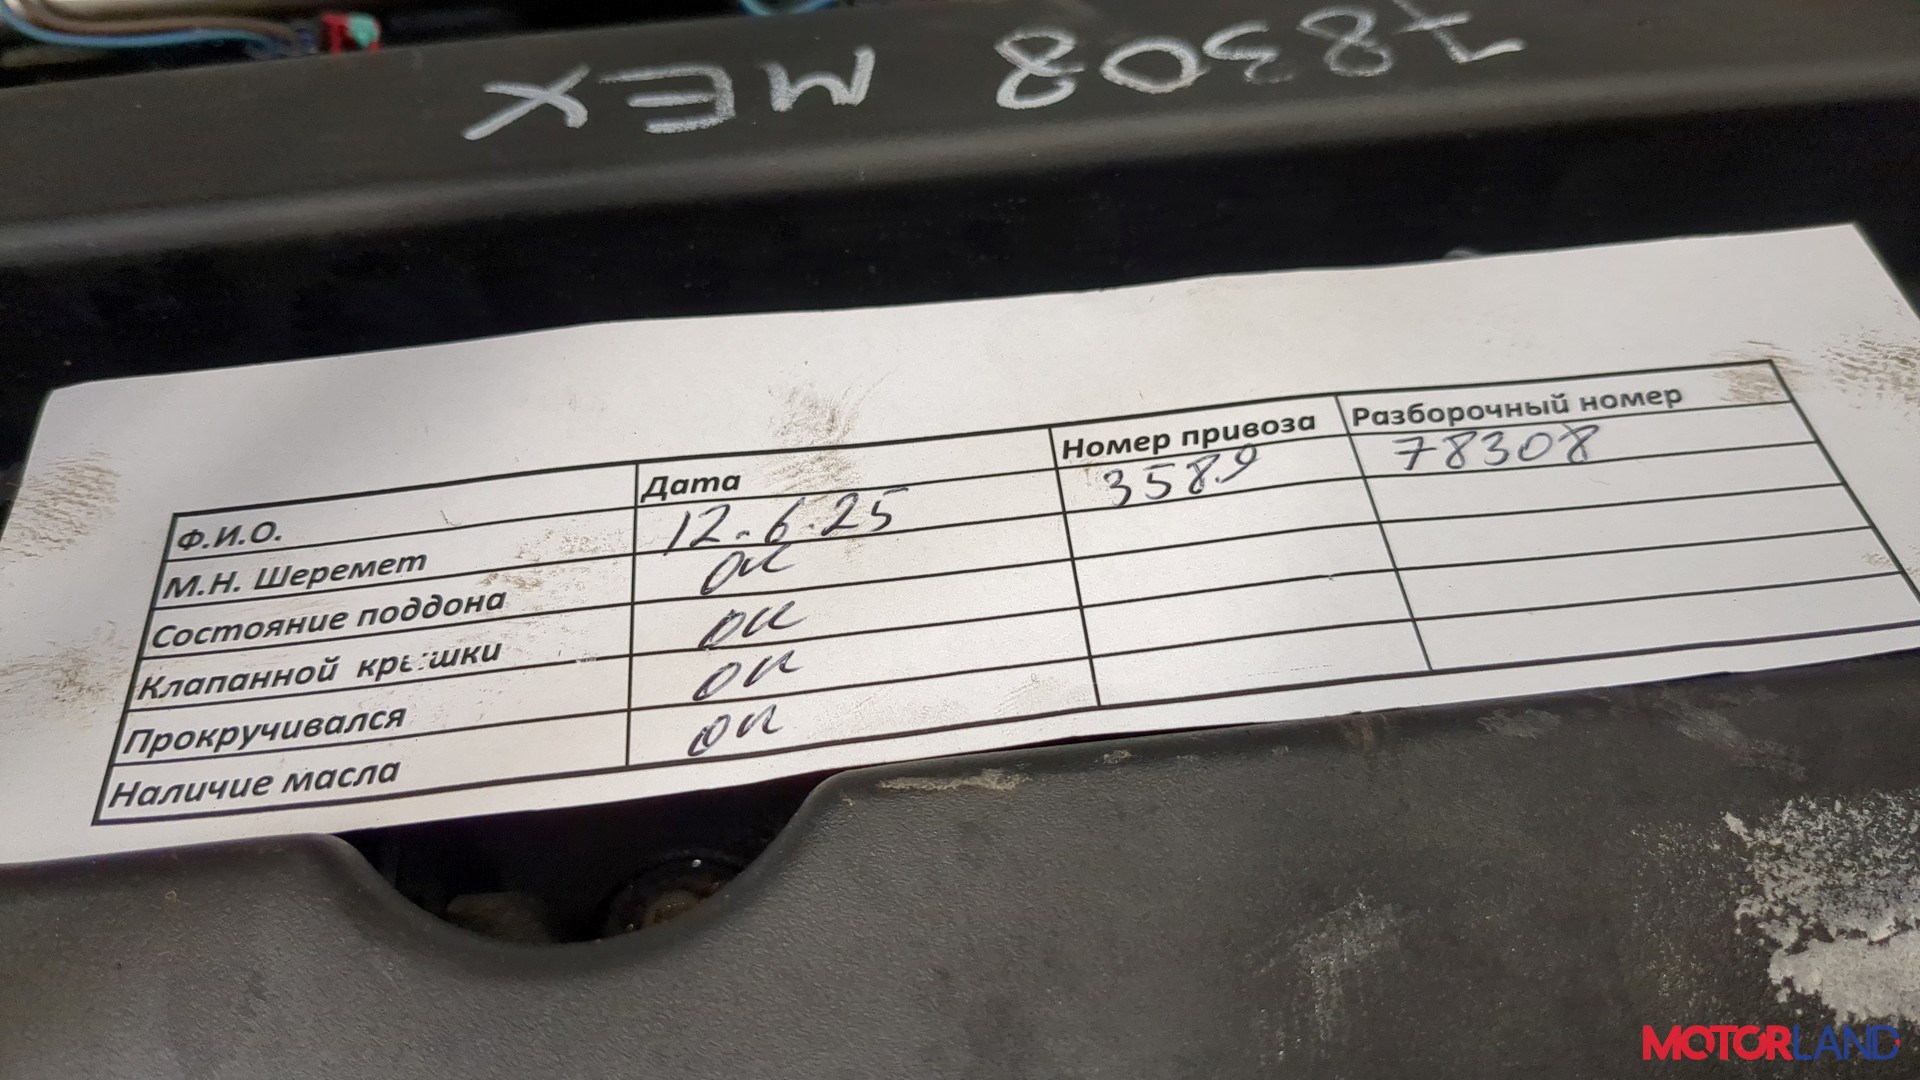 78308 МЕХ
Дата Номер привоза Разборочный номер
Ф.И.О. 12.6.25 3589 78308
М.Н. Шеремет ок
Состояние поддона ок
Клапанной крышки ок
Прокручивался ок
Наличие масла
MOTORLAND